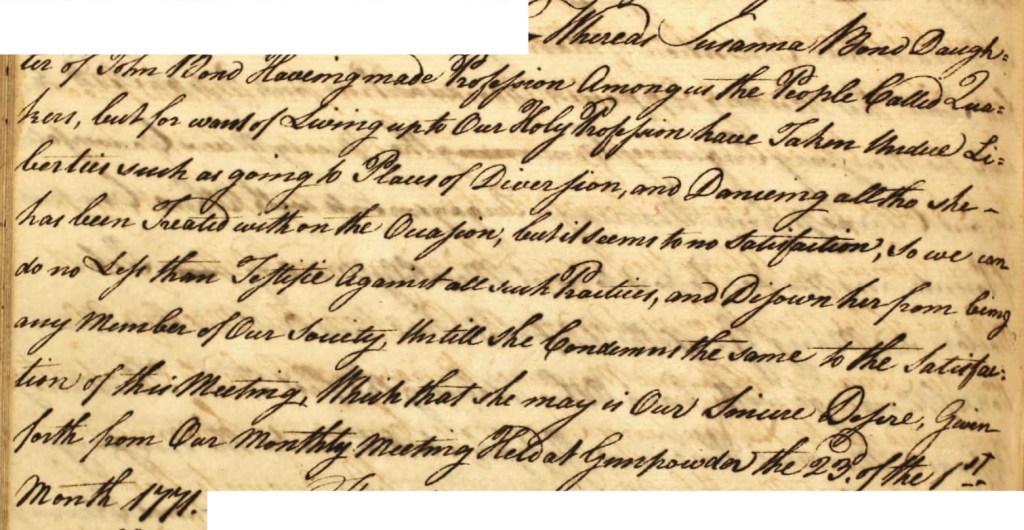 Whereas Susanna Bond Daugh=
ter of John Bond Haveing made Profession Among us the People Called Qua=
kers, but for want of Living up to Our Holy Profession have Taken Undue Li=
berties such as going to Places of Diversion, and Danceing all tho she -
has been Treated with on the Occasion, but it seems to no Satisfaction, so we can
do no Less than Testifie Against all such Practices, and Disown her from being
any Member of Our Society, Untill she Condemns the same to the Satisfac=
tion of this Meeting, Which that she may is Our Sincere Desire, Given
forth from Our Monthly Meeting Held at Gunpowder the 23d. of the 1st
Month 1771.